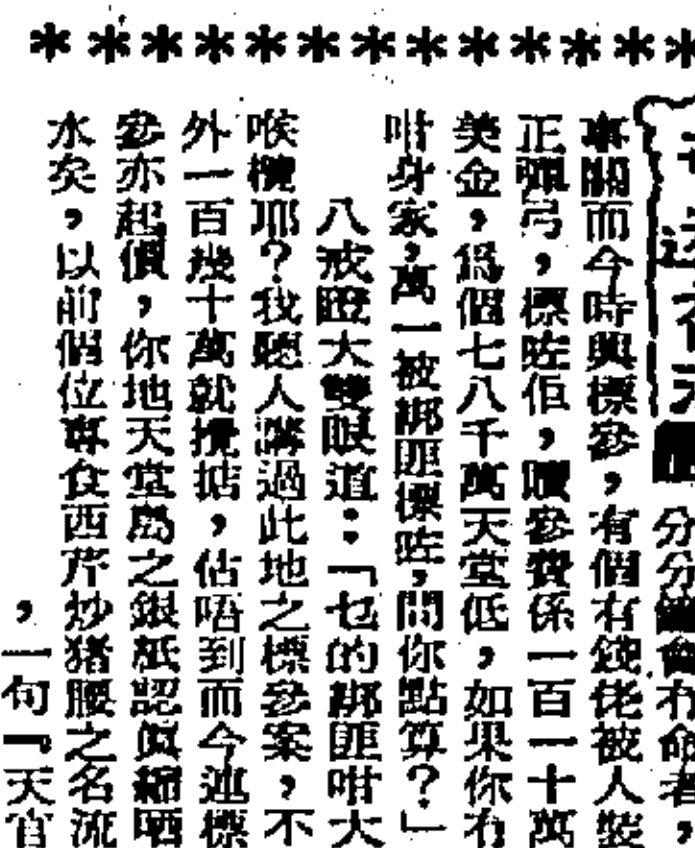 分分鐘會冇命者，
事關而今時興標參，有個有錢佬被人裝
正彈弓，標咗佢，贖參費係一百一十萬
美金，爲個七八千萬天堂低，如果你冇
咁身家，萬一被綁匪標咗，問你點算？」
八戒瞪大雙眼道：「乜的綁匪咁大
喉欖耶？我聽人講過此地之標參案，不
外一百幾十萬就攪掂，估唔到而今連標
參亦起價，你地天堂島之銀紙認眞縮晒
水矣，以前個位專食西芹炒豬腰之名流
，一句『天官